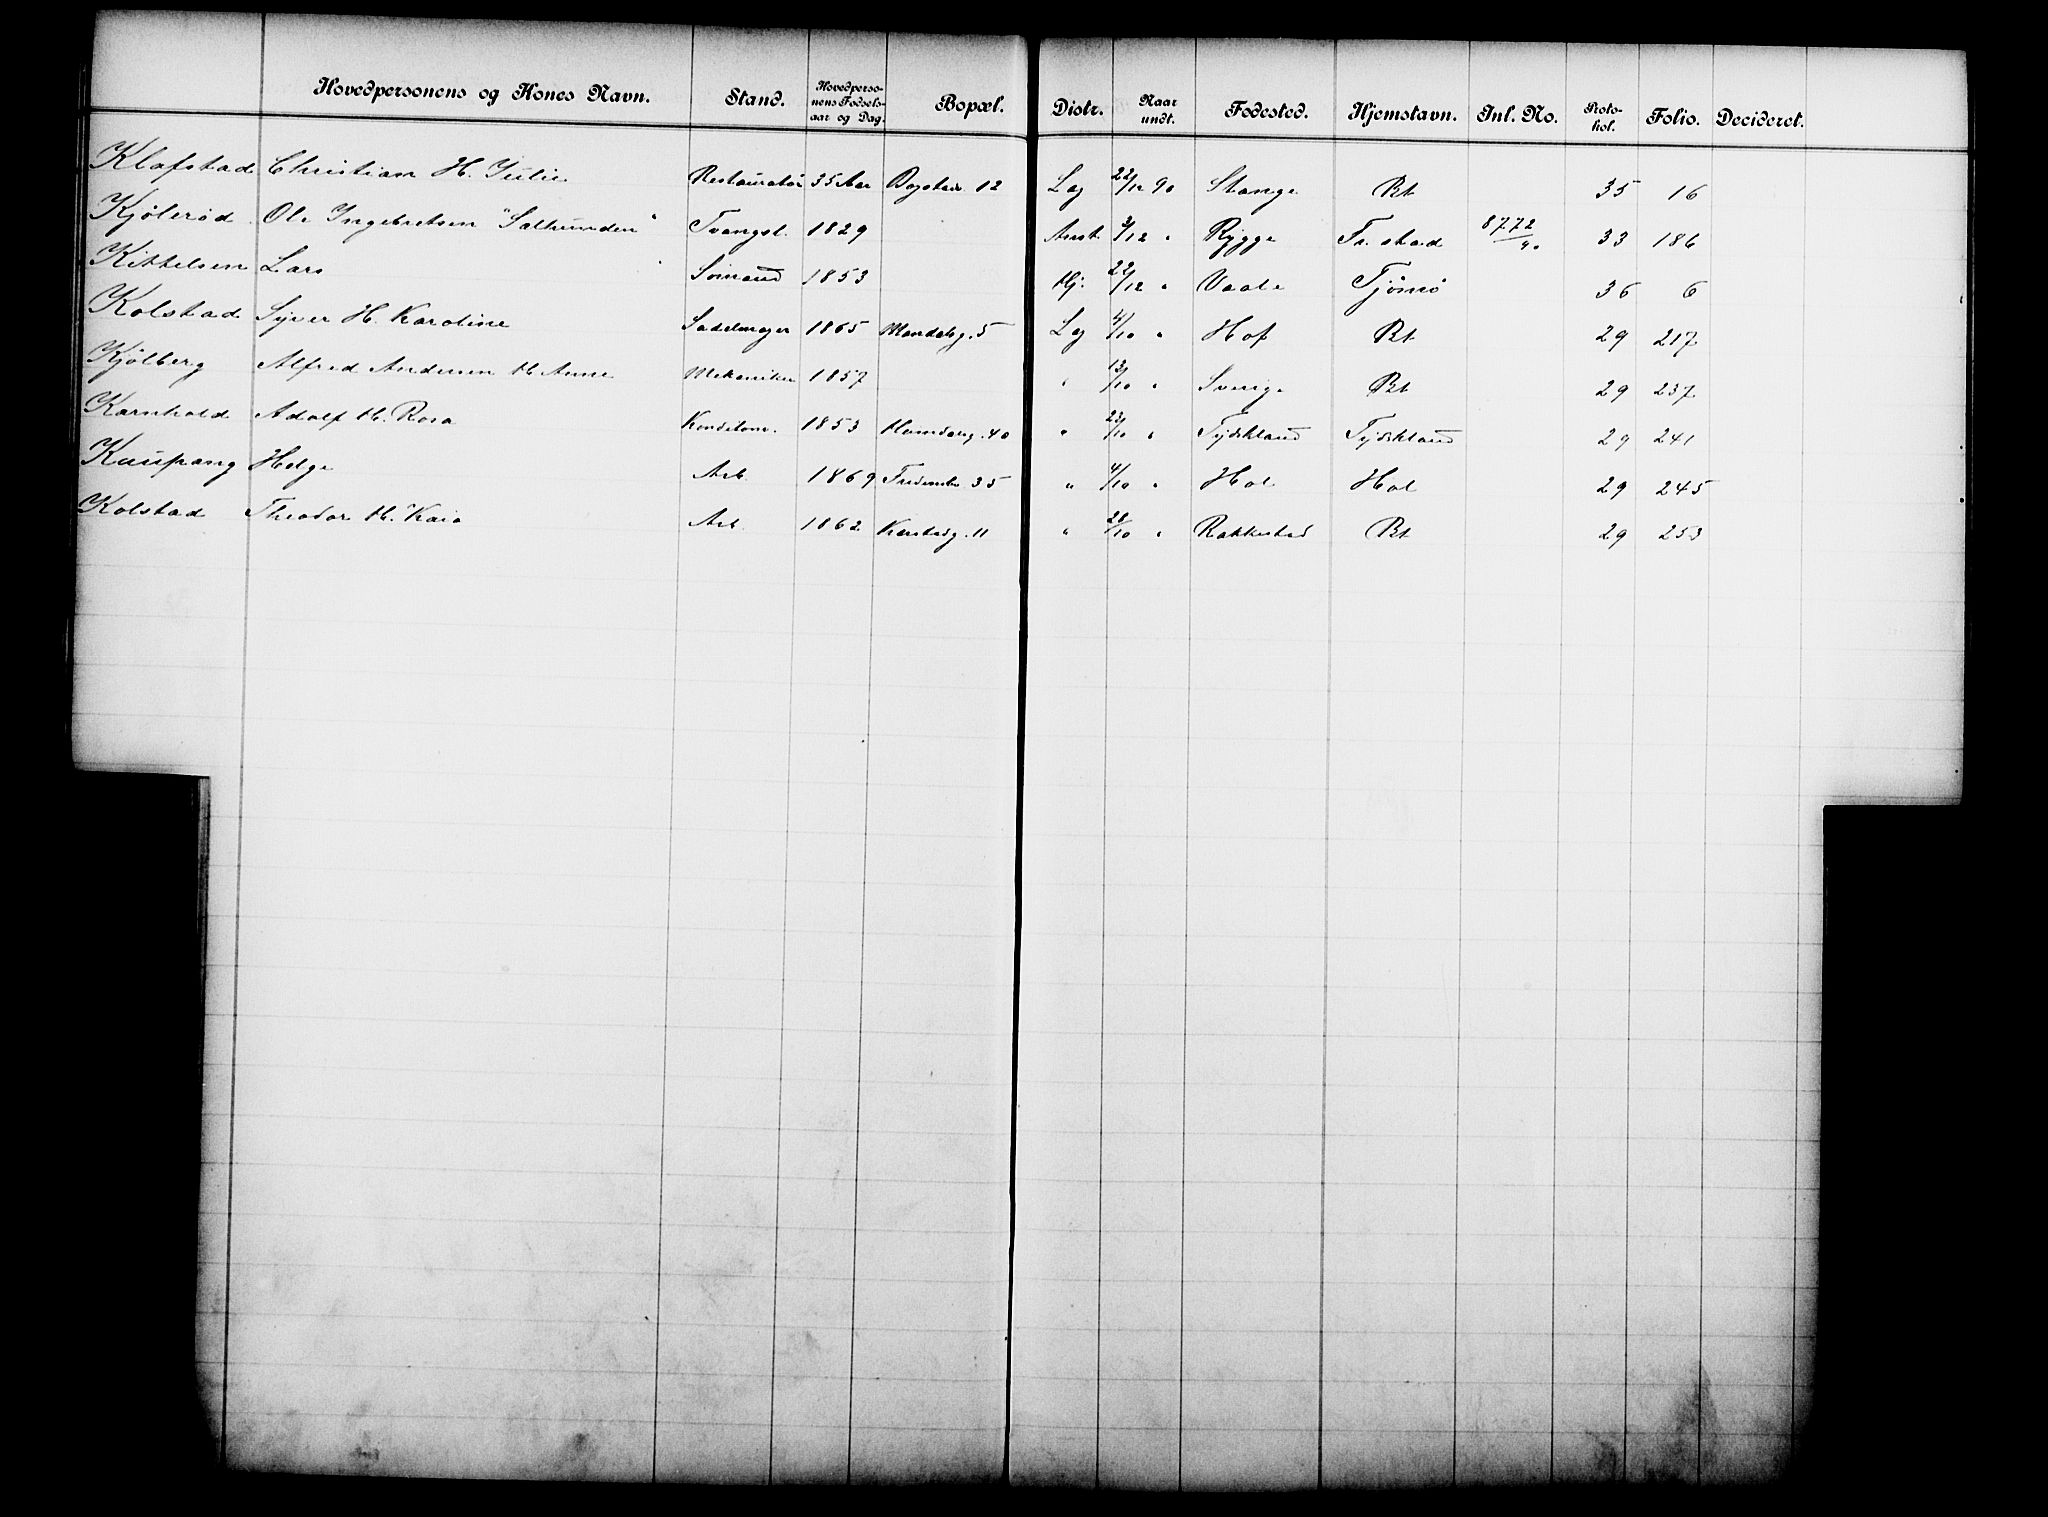 Hovedpersonens og Kones Navn. Stand. Hovedperso- nens Fødsels- aar og Dag. Bopæl. Distr. Naar undt. Fødested. Hjemstavn. Inl. No. Proto- kol. Folio. Decideret.
Klafstad Christian H. Julie Restauratør 35 Aar Bogstadv. 12 Lag 22/12 90 Stange Rt 35 16
Kjölerød Ole Ingebretsen "Salhunden" Tvangsl. 1829 Anst. 3/12 " Rygge Fr. stad 8772/90 33 186
Kittelsen Lars Sömand 1853 Hj. 22/12 " Vaale Tjömö 36 6
Kolstad Syver H. Karoline Sadelmager 1865 Mandalsg. 5 Lag 4/10 " Hof Rt 29 217
Kjölberg Alfred Andersen H. Anne Mekaniker 1857 " 13/10 " Sverige Rt 29 237
Karnhold Adolf H. Rosa 1853 40 " 23/10 " Tydskland Tydskland 29 241
Kaupang Helge Arb. 1869 35 " 4/10 " Hol Hol 29 245
Kolstad Theodor H. Kaia Arb. 1862 11 " 28/10 " Rakkestad Rt 29 253